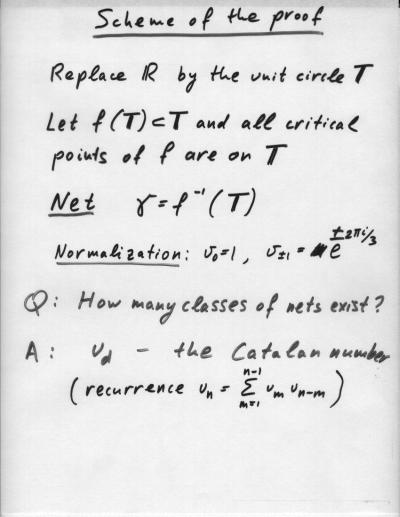 Scheme of the proof
Replace ℝ by the unit circle T
Let f(T)⊂T and all critical
points of f are on T
Net γ=f⁻¹(T)
Normalization: υ₀=1, υ±₁ = e^{±2πi/3}
Q: How many classes of nets exist?
A: u_d – the Catalan number
(recurrence u_n = Σ_{m=1}^{n-1} u_m u_{n-m})